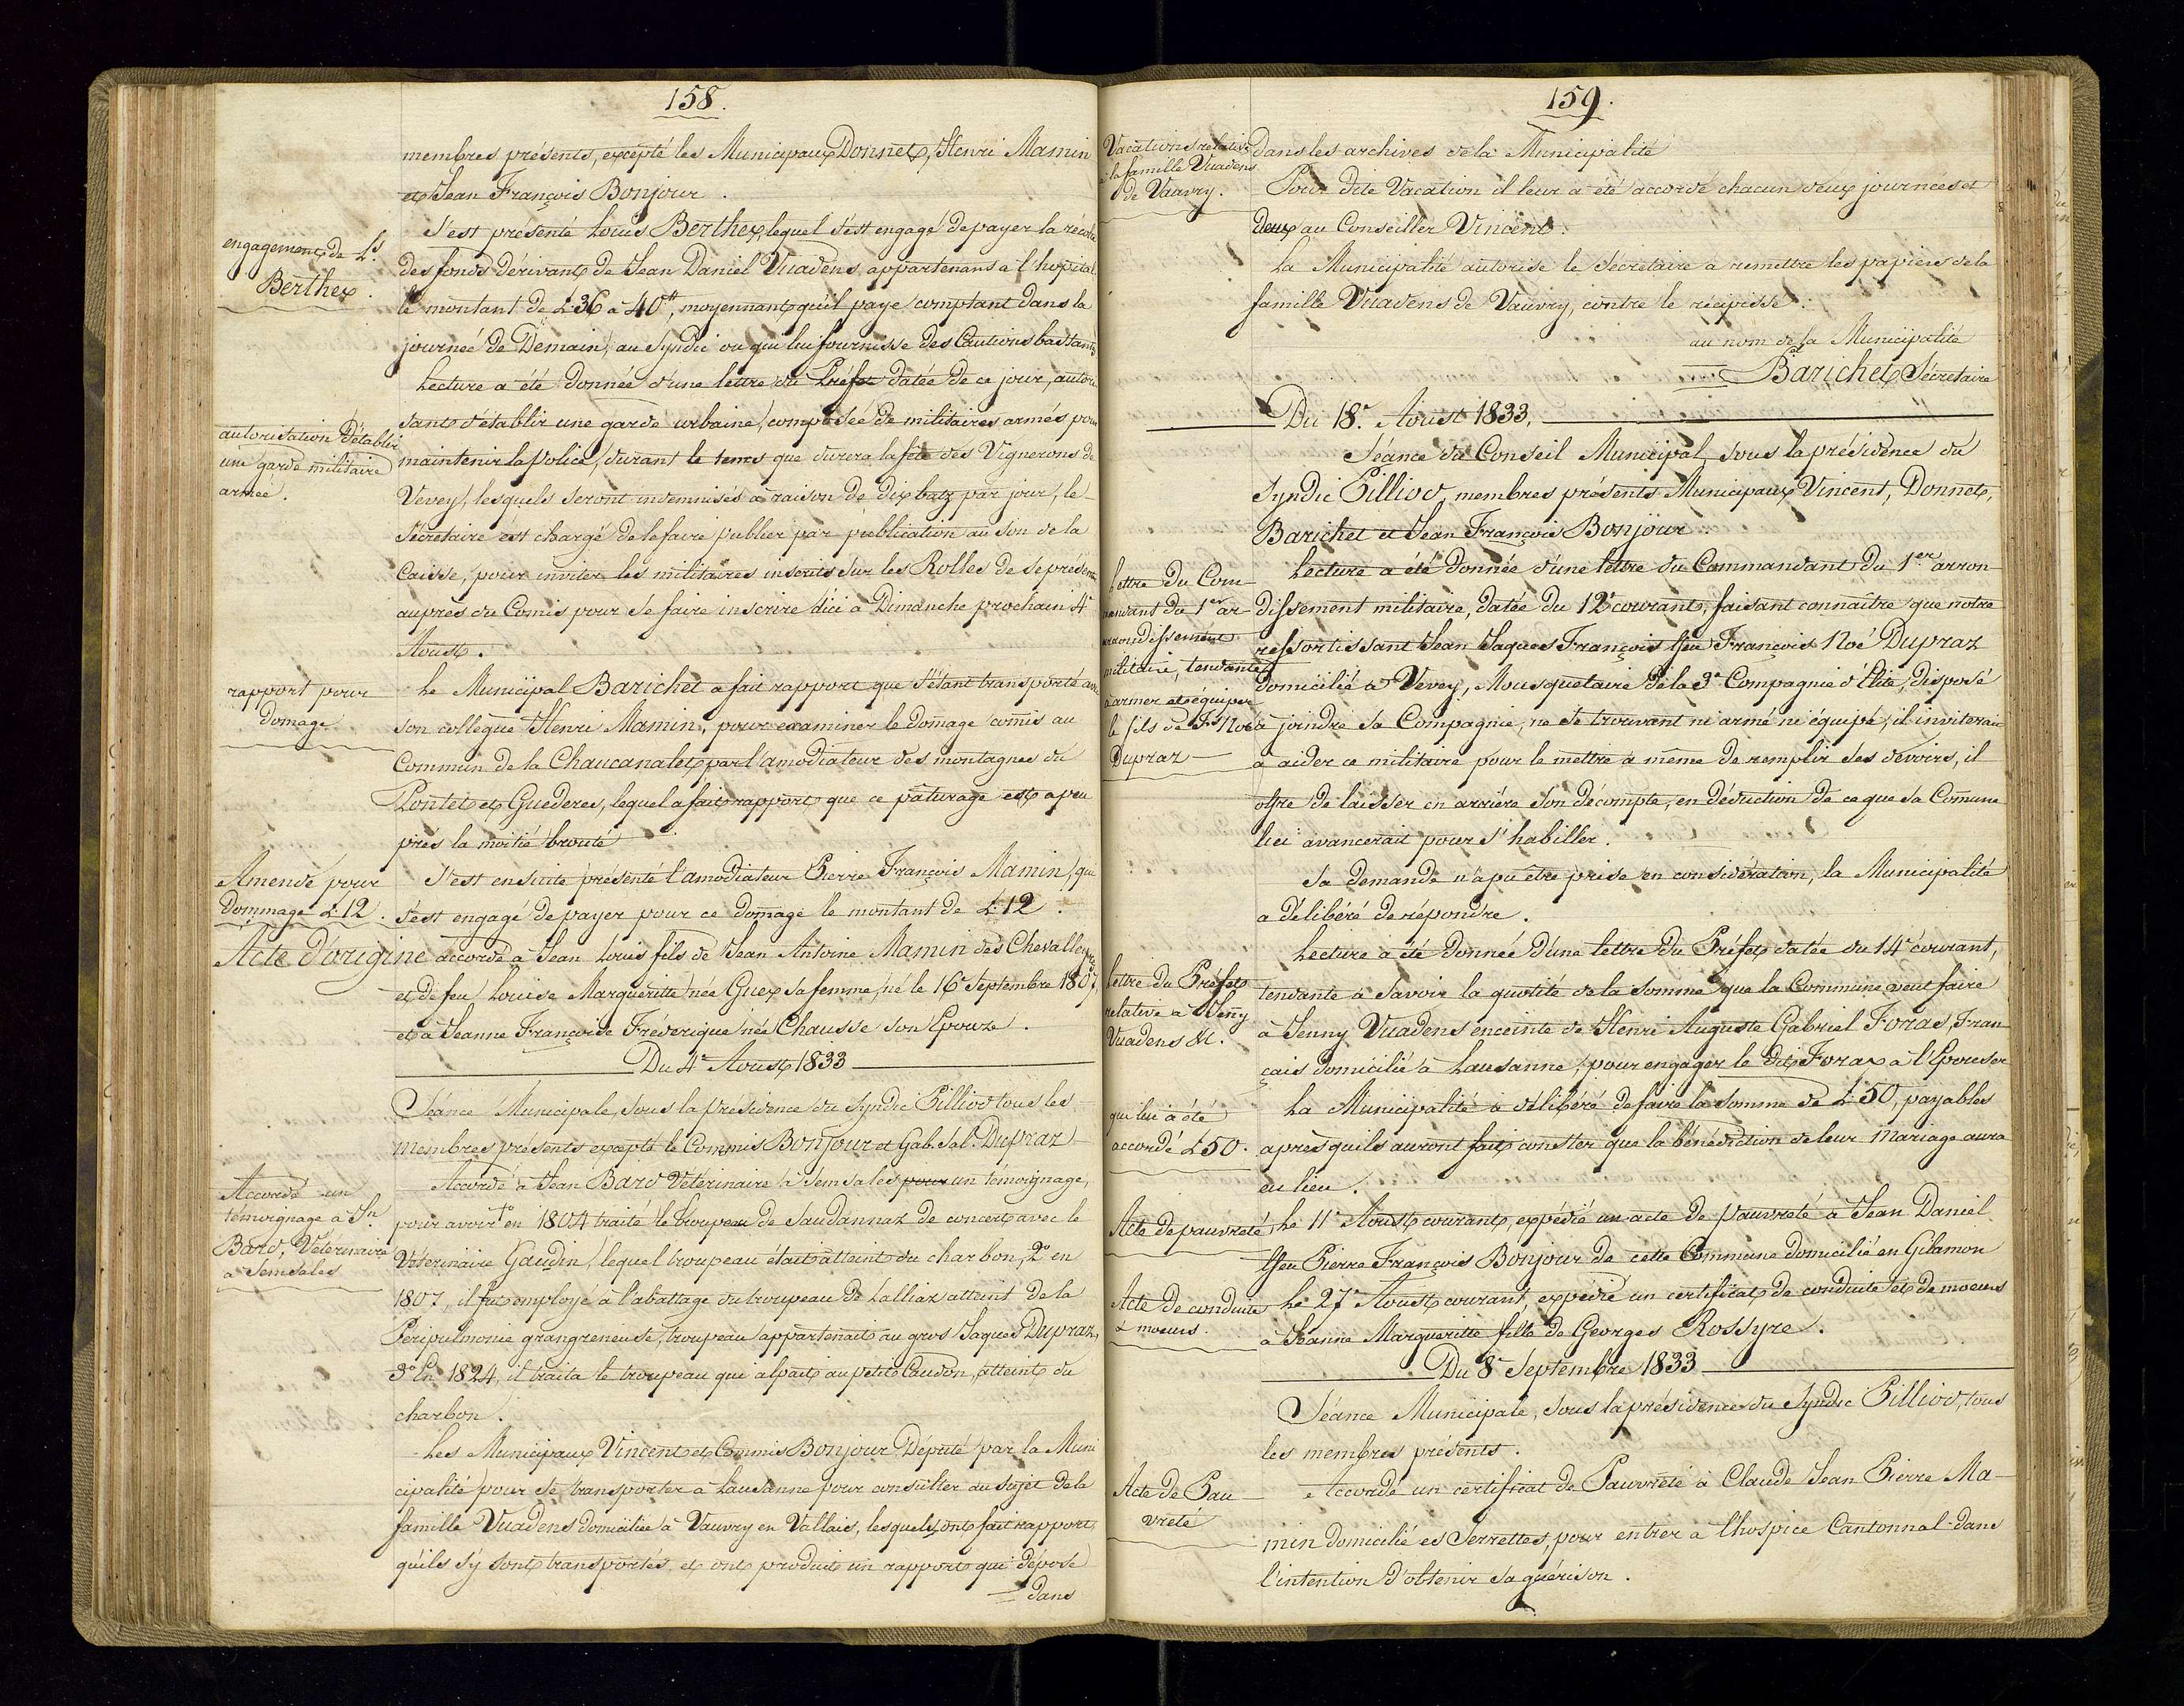 158.
membres présents, excepté les Municipaux Donnet, Henri Mamin
et Jean François Bonjour.
engagement de Ls.
Berthex.
S'est présenté Louis Berthex, lequel s'est engagé de payer la récolte
des fonds dérivant de Jean Daniel Vuadens, appartenans à l'hopital
le montant de L. 36 à 40 ff, moyennant qu'il paye comptant dans la
journée de Demain, au Syndic ou qui lui fournisse des Cautions bastantes
Lecture a été donnée d'une lettre du Préfet datée de ce jour, autori
autorisation d'établir
une garde militaire
armée.
sant d'établir une garde urbaine, composée de militaires armés pour
maintenir la police, durant le tems que durera la fête des Vignerons de
Vevey, lesquels seront indemnisés à raison de dix batz par jour, le
Sécretaire est chargé de le faire publier par publication au son de la
Caisse, pour inviter les militaires inscrits sur les Rolles de se présenter
auprès du Comis pour se faire inscrire d'ici à Dimanche prochain 4e
Aoust.
rapport pour
domage
Le Municipal Barichet a fait rapport que s'étant transporté avec
son collegue Henri Mamin, pour examiner le domage comis au
Commun de la Chaucanalet, par l'amodiateur des montagnes du
Pontet et Guederes, lequel a fait rapport que ce pâturage est a peu
près la moitié brouté
Amende pour
Dommage L. 12.
S'est ensuite présenté l'amodiateur Pierre François Mamin, qui
s'est engagé de payer pour ce domage le montant de L. 12.
Acte d'origine accordé à Jean Louis fils de Jean Antoine Mamin des Chevalleyres
et de feu Louise Margueritte née Guex sa femme, né le 16e Septembre 1807,
et à Jeanne Françoise Fréderique née Chausse son Epouze.
Du 4e Aoust 1833
Séance Municipale, sous la présidence du Syndic Pilliod tous les
membres présents excepté le Commis Bonjour et Gab. Sal. Dupraz
Accordé un
témoignage à Jn
Bard, Vétérinaire
à Semsales
Accordé à Jean Bard Vétérinaire à Semsales pour un témoignage,
pour avoir 1o en 1804 traité le troupeau de Saudannaz de concert avec le
Vétérinaire Gaudin, lequel troupeau était atteint du charbon, 2o en
1807, il fut employé à l'abattage du troupeau de Lalliaz atteint de la
Péripulmonie grangreneuse, troupeau appartenait au gros Jaques Dupraz,
3o En 1824, il traita le troupeau qui alpait au petit Caudon, atteint du
charbon.
Les Municipaux Vincent et Commis Bonjour Député par la Muni
cipalité pour se transporter à Lausanne pour consulter au sujet de la
famille Vuadens domiciliée à Vauvry en Vallais, lesquels ont fait rapport
qu'ils s'y sont transportés, et ont produit un rapport qui déposé
dans
159.
Vacations relative
à la famille Vuadens
de Vauvry.
dans les archives de la Municipalité
Pour dite Vacation il leur a été accordé chacun deux journées et
deux au Conseiller Vincent.
La Municipalité autorise le Sécretaire à remettre les papiers de la
famille Vuadens de Vauvry, contre le récépissé.
au nom de la Municipalité
Barichet Sécretaire
Du 18e. Aoust 1833.
Séance du Conseil Municipal, sous la présidence du
Syndic Pilliod, membres présents Municipaux Vincent, Donnet,
Barichet et Jean François Bonjour.
lettre du Com
mandant du 1er ar
rondissement
militaire, tendante
à armer et équiper
le fils de Fs Noé
Dupraz
Lecture a été donnée d'une lettre du Commandant du 1er arron-
dissement militaire, datée du 12e courant, faisant connaître que notre
ressortissant Jean Jaques François ffeu François Noé Dupraz
domicilié à Vevey, Mousquetaire de la 3e Compagnie d'Elite, disposé
à joindre sa Compagnie, ne se trouvant ni armé ni équipé, il inviterait
à aider ce militaire pour le mettre à même de remplir ses devoirs, il
offre de laisser en arrière son décompte, en déduction de ce que sa Comune
lui avancerait pour s'habiller.
Sa demande n'a pu être prise en considération, la Municipalité
a délibéré de répondre.
lettre du Préfet
relative à Jeñy
Vuadens &c.
Lecture a été donnée d'une lettre du Préfet datée du 14e courant,
tendante à savoir la quotité de la somme que la Commune veut faire
à Jenny Vuadens enceinte de Henri Auguste Gabriel Foras, Fran
çais domicilié à Lausanne, pour engager le dit Forax à l'Epouser
qui lui a été
accordé L 50.
La Municipalité a délibéré de faire la somme de L. 50, payables
après qu'ils auront fait conster que la bénédiction de leur Mariage aura
eu lieu.
Acte de pauvreté
Le 11e Aoust courant, expédié un acte de Pauvreté à Jean Daniel
ffeu Pierre François Bonjour de cette Commune domicilié en Gilamon
Acte de conduite
& moeurs.
Le 27e Aoust courant, expédié un certificat de conduite et de moeurs
à Jeanne Margueritte fille de Georges Rossyre.
Du 8e Septembre 1833
Séance Municipale, sous la présidence du Syndic Pilliod, tous
les membres présents.
Acte de Pau
vreté
Accordé un certificat de Pauvreté à Claude Jean Pierre Ma-
min domicilié es Serrettes, pour entrer à l'hospice Cantonnal dans
l'intention d'obtenir sa guérison.